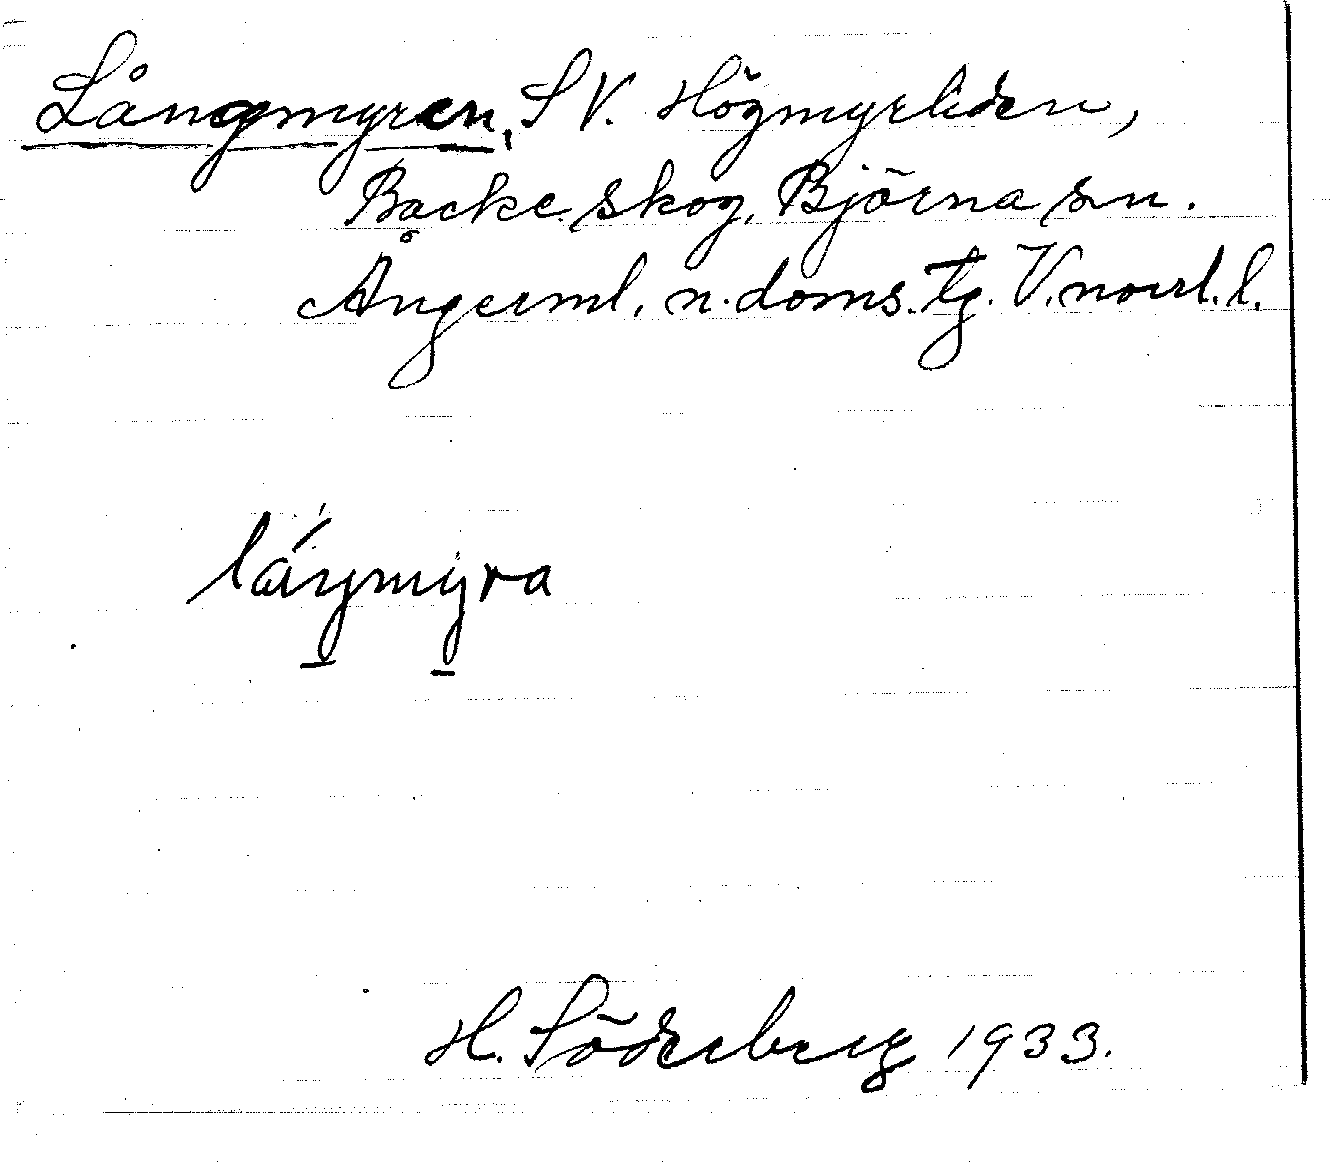 Långmyren, SV. Högmyrliden,
Backe skog, Björna sn.
Ångerml. n. doms. tg. V. norrl. l.
låŋmyra
H. Söderberg 1933.